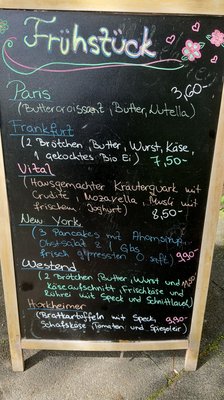 Frühstück
Paris 3,60-
(Buttercroissant, Butter, Nutella)
Frankfurt
(2 Brötchen, Butter, Wurst, Käse,
1 gekochtes Bio Ei) 7,50-
Vital
(Hausgemachter Kräuterquark mit
Crudité, Mozarella, Müsli mit
frischem Joghurt) 8,50-
New York
(3 Pancakes mit Ahornsirup,
Obstsalat & 1 Glas
frisch gepressten O. saft) 9,90-
Westend
(2 Brötchen, Butter, Wurst und
Käseaufschnitt, Frischkäse und
Rührei mit Speck und Schnittlauch)
Horkheimer
(Bratkartoffeln mit Speck, 9,90-
Schafskäse, Tomaten und Spiegelei)